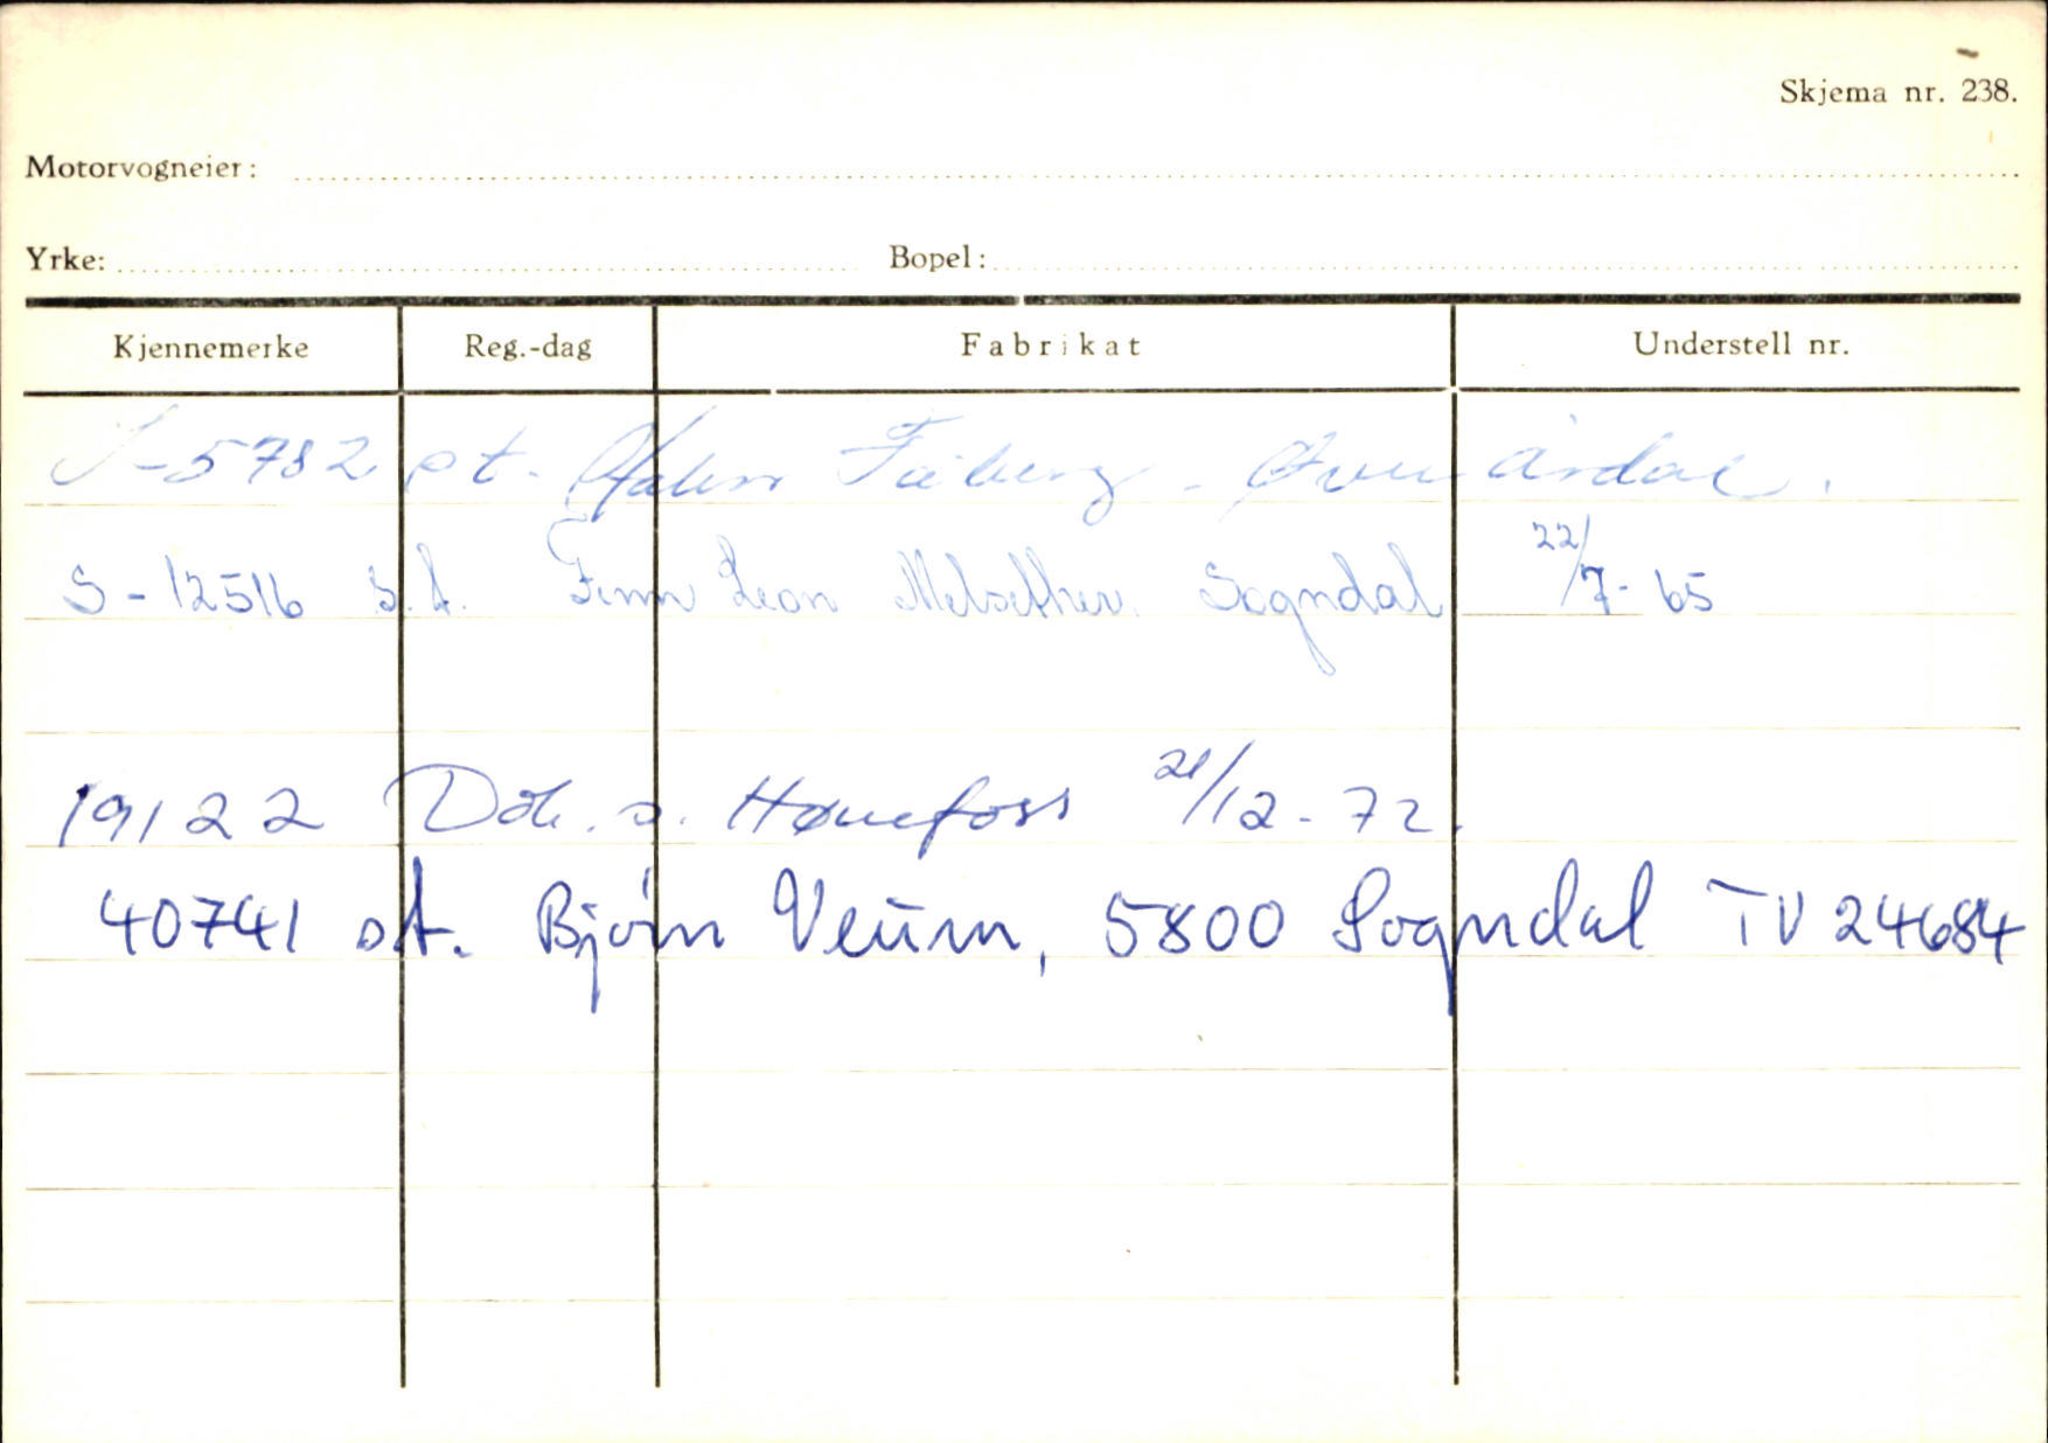 Skjema nr. 238.
Motorvogneier:
Yrke: Bopel:
Kjennemerke Reg.-dag Fabrikat Understell nr.
S-5782 st. Fåberg - Øvre Årdal.
S-12516 s.t. Finn Leon Melsether. Sogndal 22/7-65
19122 Dok. s. Hønefoss 21/12-72.
40741 st. Bjørn Veum, 5800 Sogndal TV 24684